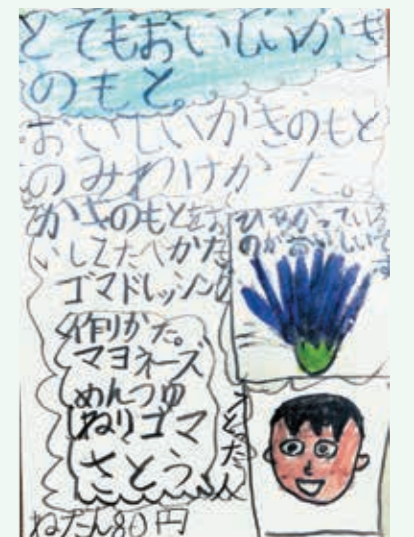 とてもおいしいかき
のもと。
おいしいかきのもと
のみわけかた。
かきのもとをお
いしくたべかた
ゴマドレッシング
作りかた。
マヨネーズ
めんつゆ
ねりゴマ
さとう
ひらがっている
のがおいしいで
す
ねだん80円